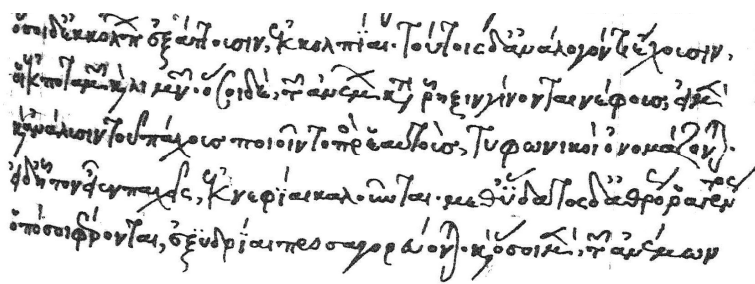 ὅσοι δὲ ἐκ κόλπων ἐξάπτουσιν, ἐγκολπίαι· τούτοις δὲ ἀνάλογον τι ἔχουσιν,
οἱ ἐκ ποταμῶν καὶ λιμνῶν· ὅσοι δὲ, τῶν ἀνέμων κατὰ ῥῆξιν γίνονται νέφους,
ἀνάλυσιν τοῦ πάχους ποιοῦντο πρὸς ἑαυτοὺς, τυφωνικοὶ ὀνομάζονται·
ἐκνεφΐαι καλοῦνται· μεθ' ὕδατος δὲ ἀθρόως ῥαγέντες
ὁπόσοι φέρονται, ἐξυδρίαι προσαγορεύονται· καὶ ὅσοι μὲν, τῶν ἀνέμων